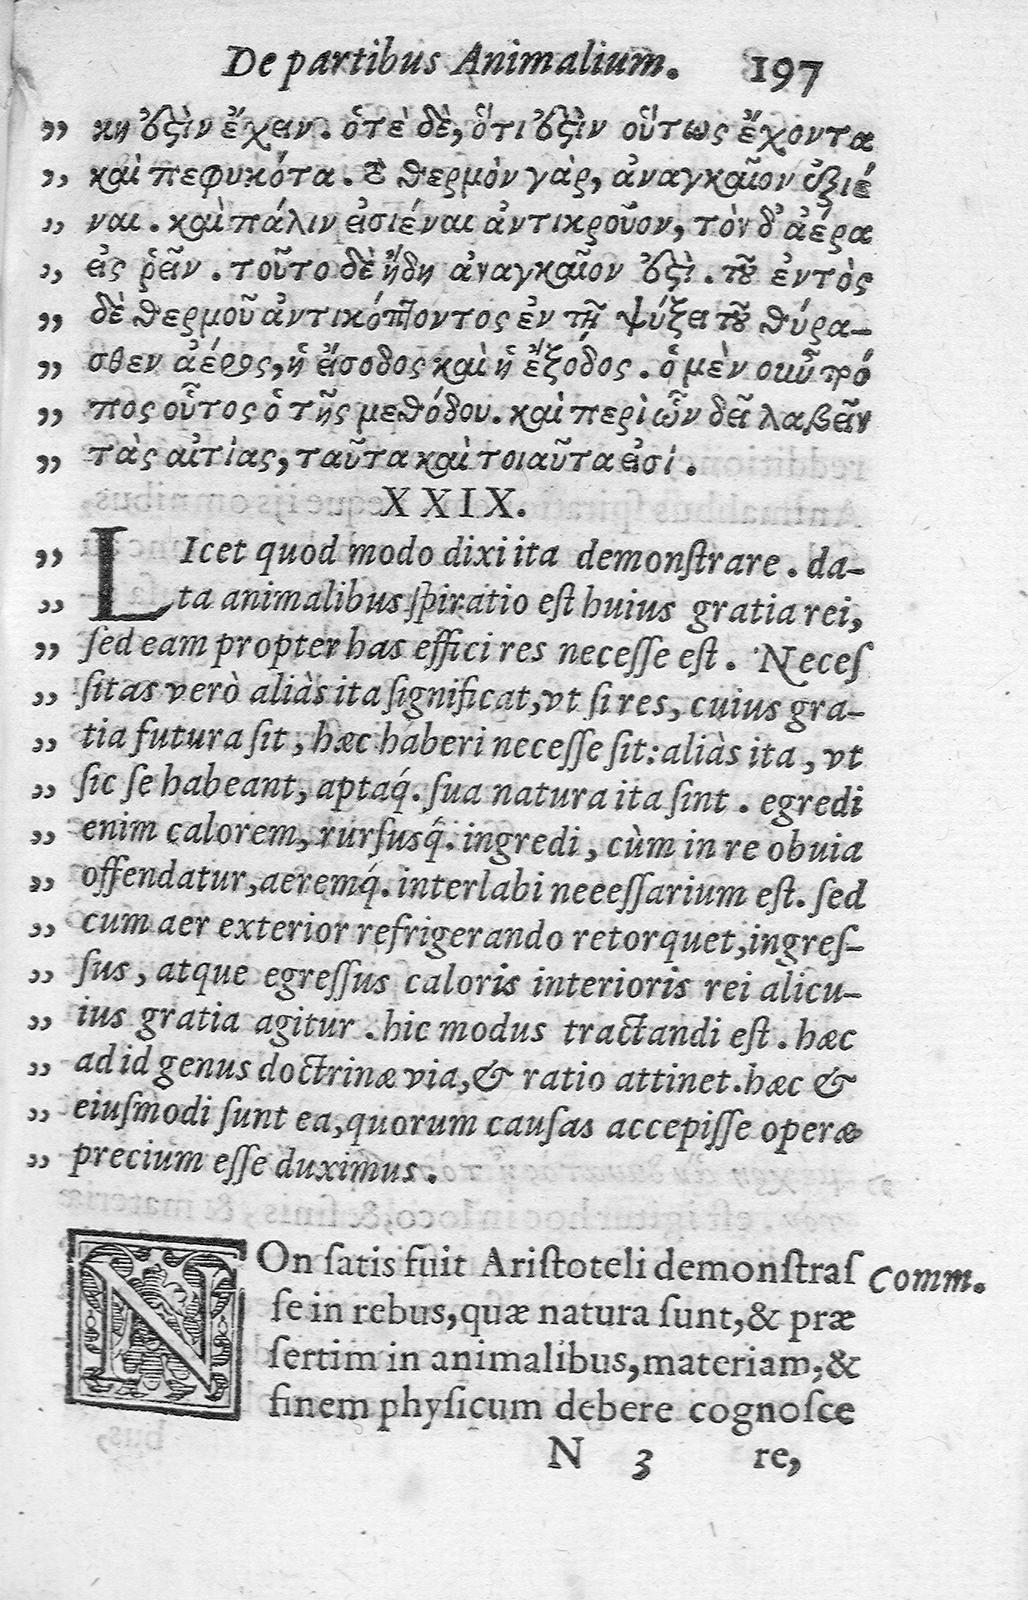 De partibus Animalium. 197
„ κη ἐστὶν ἔχειν. ὁτὲ δὲ, ὅτι ἐστὶν οὕτως ἔχοντα
„ καὶ πεφυκότα. τὸ θερμὸν γὰρ, ἀναγκαῖον ἐξιέ
„ ναι. καὶ πάλιν εἰσιέναι ἀντικροῦον, τὸν δ' ἀέρα
„ εἰς ῥεῖν. τοῦτο δὲ ἤδη ἀναγκαῖον ἐστί. τοῦ ἐντὸς
„ δὲ θερμοῦ ἀντικόπτοντος ἐν τῇ ψύξει τοῦ θύρα-
„ σθεν ἀέρος, ἡ εἴσοδος καὶ ἡ ἔξοδος. ὁ μὲν οὖν τρό
„ πος οὗτος ὁ τῆς μεθόδου. καὶ περὶ ὧν δεῖ λαβεῖν
„ τὰς αἰτίας, ταῦτα καὶ τοιαῦτα εἰσί.
XXIX.
„ LIcet quod modo dixi ita demonſtrare. da-
„ ta animalibus ſpiratio eſt huius gratia rei,
„ ſed eam propter has effici res neceſſe eſt. Neceſ
„ ſitas verò aliàs ita ſignificat, vt ſi res, cuius gra-
„ tia futura ſit, hæc haberi neceſſe ſit: aliàs ita, vt
„ ſic ſe habeant, aptaq́. ſua natura ita ſint. egredi
„ enim calorem, rurſusq́. ingredi, cùm in re obuia
„ offendatur, aeremq́. interlabi neeeſſarium eſt. ſed
„ cum aer exterior refrigerando retorquet, ingreſ-
„ ſus, atque egreſſus caloris interioris rei alicu-
„ ius gratia agitur. hic modus tractandi eſt. hæc
„ ad id genus doctrinæ via, & ratio attinet. hæc &
„ eiuſmodi ſunt ea, quorum cauſas accepiſſe operæ
„ precium eſſe duximus.
NOn ſatis fuit Ariſtoteli demonſtraſ Comm.
ſe in rebus, quæ natura ſunt, & præ
ſertim in animalibus, materiam, &
finem phyſicum debere cognoſce
N 3 re,